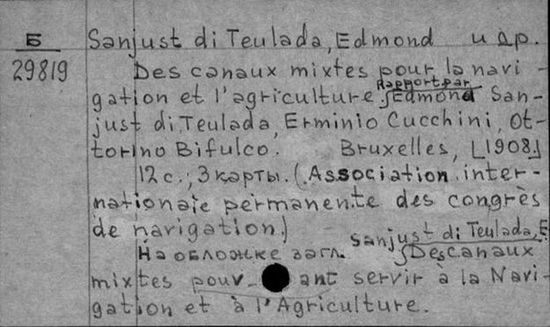 Б
29819
Sanjust di Teulada, Edmond и др.
Des canaux mixtes pour la navi-
gation et l'agriculture. Rapport par Edmond San-
just di Teulada, Erminio Cucchini, Ot-
torino Bifulco. Bruxelles, [1908]
12 с.; 3 карты. (Association inter-
nationale permanente des congrès
de navigation.)
На обложке загл. Sanjust di Teulada, E. Des canaux
mixtes pouv- ant servir à la Navi-
gation et à l'Agriculture.